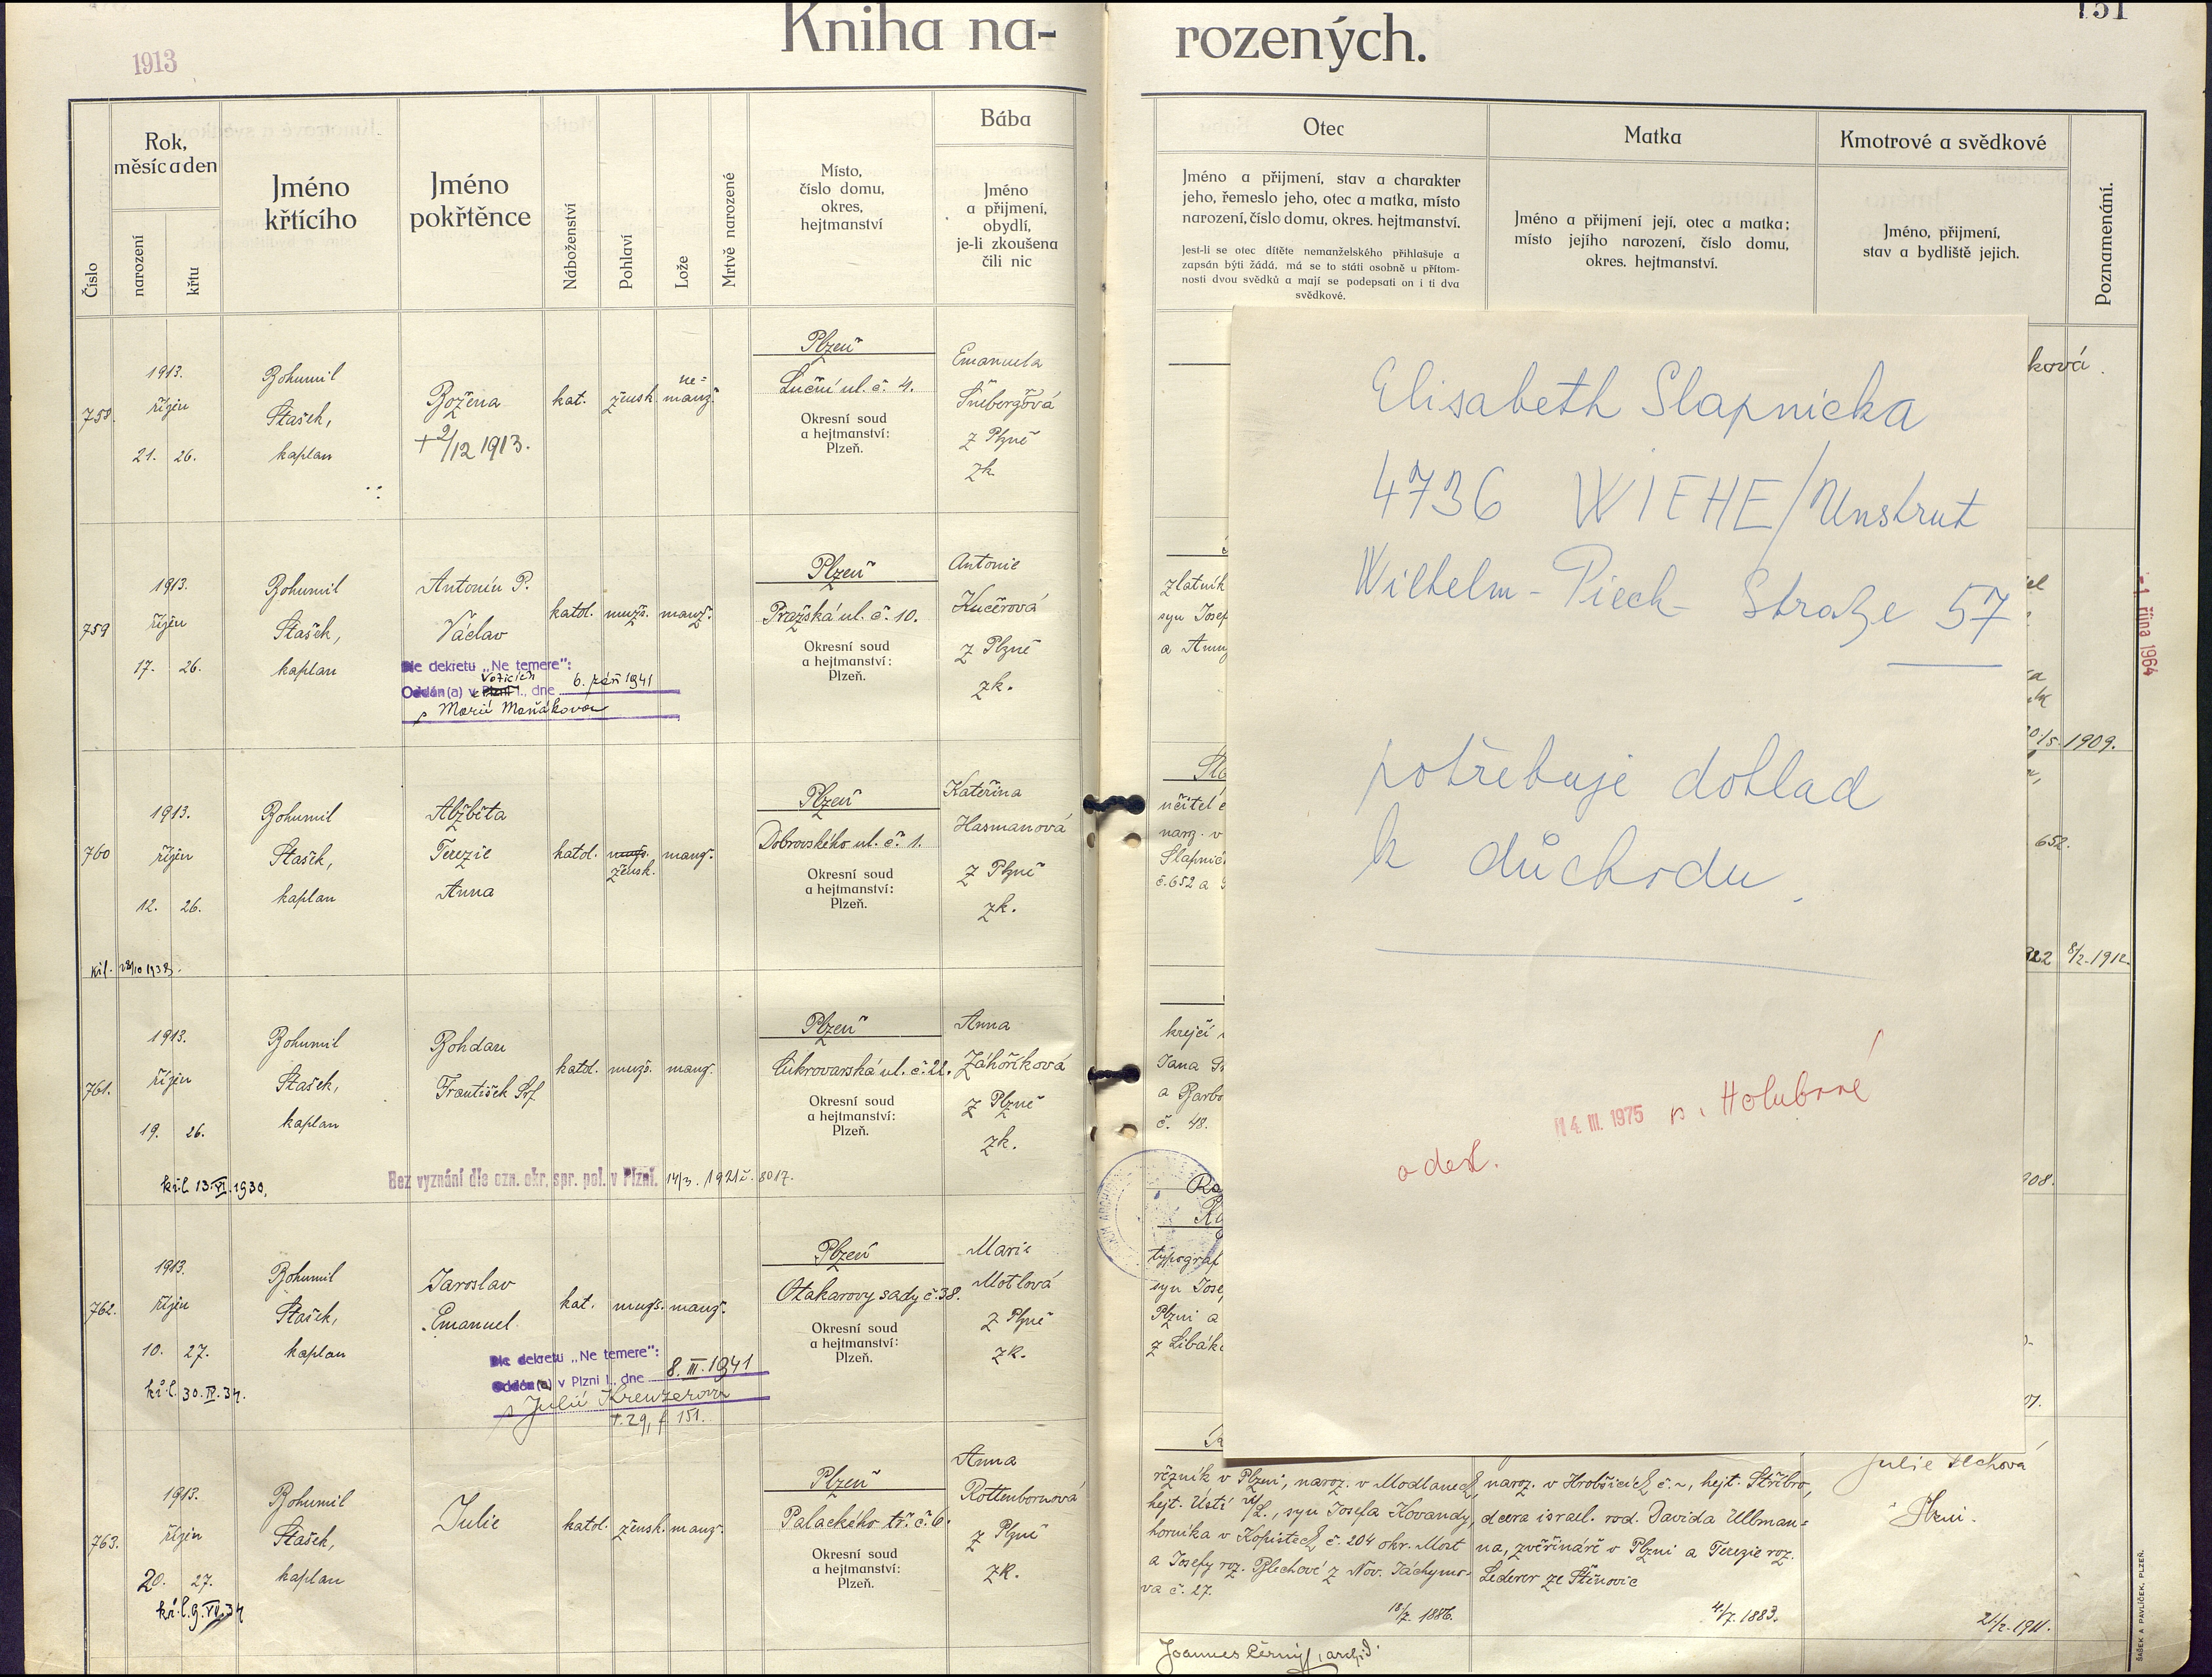 Kniha na-
rozených.
151
1913
Číslo
Rok,
měsíc a den
narození
křtu
Jméno
křtícího
Jméno
pokřtěnce
Náboženství
Pohlaví
Lože
Mrtvě narozené
Místo,
číslo domu,
okres,
hejtmanství
Bába
Jméno
a přijmení,
obydlí,
je-li zkoušena
čili nic
Otec
Jméno a přijmení, stav a charakter
jeho, řemeslo jeho, otec a matka, místo
narození, číslo domu, okres. hejtmanství.
Jest-li se otec dítěte nemanželského přihlašuje a
zapsán býti žádá, má se to státi osobně u přítom-
nosti dvou svědků a mají se podepsati on i ti dva
svědkové.
Matka
Jméno a přijmení její, otec a matka;
místo jejího narození, číslo domu,
okres. hejtmanství.
Kmotrové a svědkové
Jméno, přijmení,
stav a bydliště jejich.
Poznamenání.
758.
1913.
říjen
21. 26.
Bohumil
Stašek,
kaplan
Božena
+ 2/12 1913.
kat.
žensk.
ne=
manž.
Plzeň
Luční ul. č. 4.
Okresní soud
a hejtmanství:
Plzeň.
Emanuela
Šnebergová
z Plzně
zk.
ková.
759
1913.
říjen
17. 26.
Bohumil
Stašek,
kaplan
Antonín P.
Václav
Dle dekretu „Ne temere":
Oddán(a) v Plzni I., dne 6. září 1941
s Marií Maňákovou
katol.
mužs.
manž.
Plzeň
Pražská ul. č. 10.
Okresní soud
a hejtmanství:
Plzeň.
Antonie
Kučerová
z Plzně
zk.
zlatník
syn Josef
a Anny
1909.
- 1. října 1964
760
1913.
říjen
12. 26.
Bohumil
Stašek,
kaplan
Alžběta
Terezie
Anna
katol.
mužs.
žensk.
manž.
Plzeň
Dobrovského ul. č. 1.
Okresní soud
a hejtmanství:
Plzeň.
Kateřina
Hasmanová
z Plzně
zk.
kř.l. 28/10 1938.
učitel
naroz. v
Slapnič
č. 652 a
652.
922 8/2. 1912.
761.
1913.
říjen
19. 26.
Bohumil
Stašek,
kaplan
Bohdan
František Jos.
katol.
mužs.
manž.
Plzeň
Cukrovarská ul. č. 22.
Okresní soud
a hejtmanství:
Plzeň.
Anna
Záhoříková
z Plzně
zk.
kř.l. 13.VI.1930.
Bez vyznání dle ozn. okr. spr. pol. v Plzni. 14/3. 1921 č. 8017.
krejčí
Jana
a Barbo
č. 48.
908.
762.
1913.
říjen
10. 27.
Bohumil
Stašek,
kaplan
Jaroslav
Emanuel
kat.
mužs.
manž.
Plzeň
Otakarovy sady č. 38.
Okresní soud
a hejtmanství:
Plzeň.
Marie
Motlová
z Plzně
zk.
kř.l. 30.IV.34.
Dle dekretu „Ne temere":
Oddán(a) v Plzni I., dne 8. III. 1941
s Julií Kreuzerovou
T. 29, f. 151.
typograf
syn Jose
Plzni a
z Libák
763.
1913.
říjen
20. 27.
Bohumil
Stašek,
kaplan
Julie
katol.
žensk.
manž.
Plzeň
Palackého tř. č. 6.
Okresní soud
a hejtmanství:
Plzeň.
Anna
Rottenbornová
z Plzně
zk.
kř.l. 9.VII.34
řezník v Plzni, naroz. v Modlanech,
hejt. Ústí n/L., syn Josefa Kovandy,
horníka v Kopistech č. 204 okr. Most
a Josefy roz. Blechové z Nov. Jáchymo-
va č. 27.
18/7. 1886.
naroz. v Hrobčicích č. ~, hejt. Stříbro,
dcera israel. rod. Davida Ullman=
na, zvěřináře v Plzni a Terezie roz.
Lederer ze Štěnovic
4/7. 1883.
Julie Plchová
Plzni.
21/2. 1911.
Joannes Černý, archid.
ŠAŠEK A PAVLÍČEK, PLZEŇ.
Elisabeth Slapnicka
4736 WIEHE/Unstrut
Wilhelm-Pieck-Straße 57
potřebuje doklad
k důchodu.
odesl. 14. III. 1975 p. Holubové